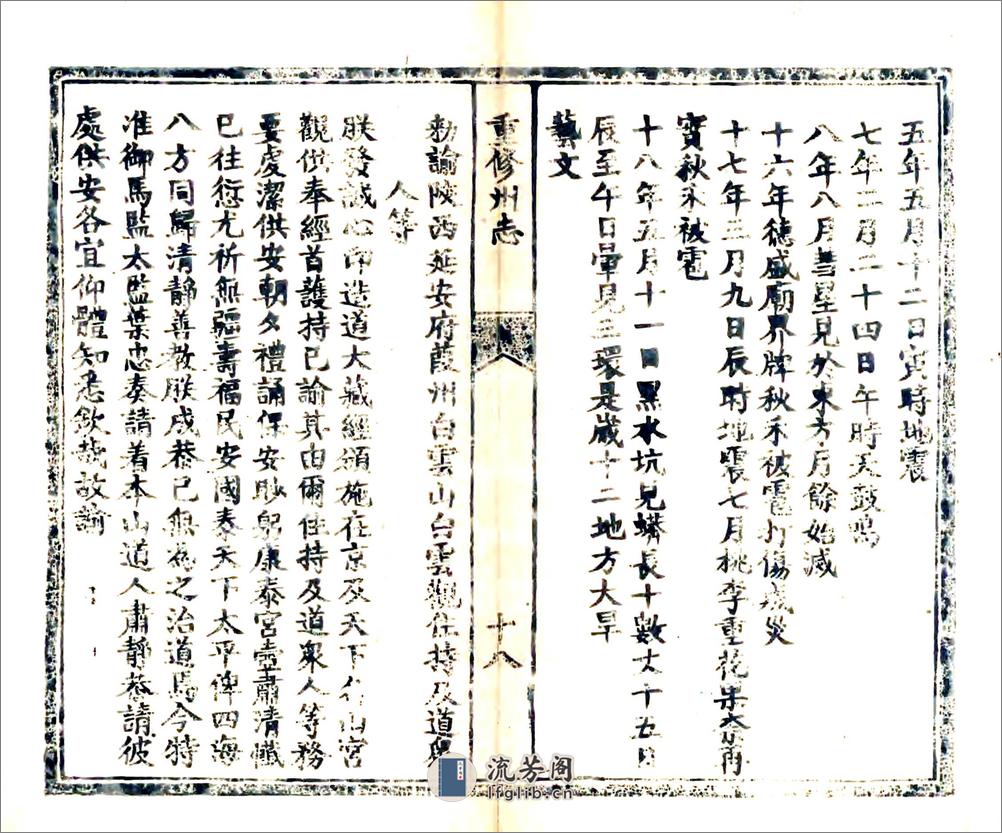 五年五月十二日寅時地震
七年二月二十四日午時天鼓鳴
八年八月彗星見於東方月餘始滅
十六年德盛廟界牌秋禾被雹打傷成災
十七年三月九日辰時地震七月桃李重花果木再
實秋禾被雹
十八年五月十一日黑水坑見蟒長十數丈十五日
辰至午日暈見三環是歲十二地方大旱
藝文
重修州志
十八
勑諭陝西延安府葭州白雲山白雲觀住持及道眾
人等
朕發誠心印造道大藏經頒施在京及天下名山宮
觀供奉經首護持已諭其由爾住持及道眾人等務
要虔潔供安朝夕禮誦保安眇躬康泰宮壼肅清懺
已往愆尤祈無疆壽福民安國泰天下太平俾四海
八方同歸清靜善教朕成恭己無為之治道焉今特
准御馬監太監葉忠奏請着本山道人肅靜恭請彼
處供安各宜仰體知悉欽哉故諭
流芳阁
lfglib.cn